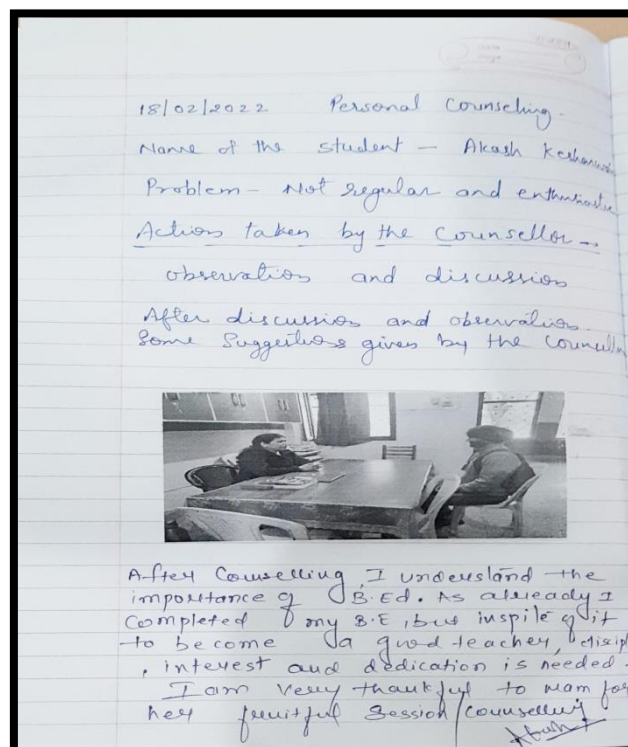 18/02/2022 Personal Counseling.
Name of the student - Akash
Problem - Not regular and
Action taken by the Counsellor -
observation and discussion
After discussion and observation.
Some Suggestions given by the
After Counselling, I understand the
importance of B.Ed. As already I
completed my B.E, but inspite of it
to become a good teacher,
, interest and dedication is needed.
I am very thankful to mam for
her fruitful Session/Counselling